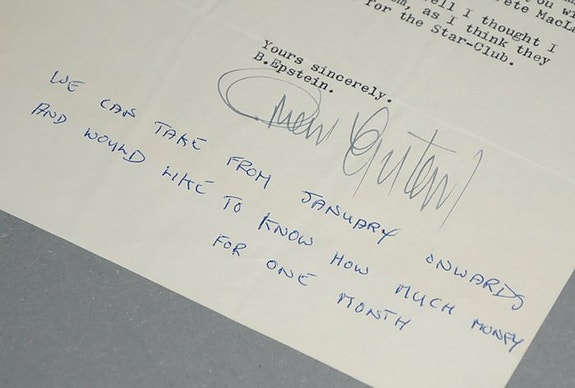 ou wi
ete MacL
ell I thought I
m, as I think they
for the Star-Club.
Yours sincerely.
B.Epstein.
Brian Epstein
WE CAN TAKE FROM JANUARY ONWARDS
AND WOULD LIKE TO KNOW HOW MUCH MONEY
FOR ONE MONTH